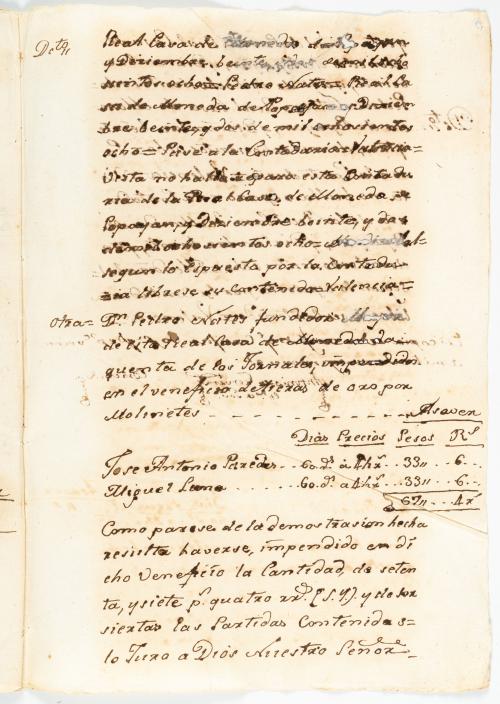 Dcto
Real Casa de Moneda de Popayan
y Diziembre beinte y dos de mil ocho
sientos ocho = Pedro Nates = Real Ca
sa de Moneda de Popayan = Diziem
bre beinte, y dos de mil ochosientos
ocho = Pase a la Contaduria = Valencia =
Vista no halla reparo esta Contadu
ria de la Real Casa, de Moneda =
Popayan, y Diziembre beinte, y dos
de mil ochosientos ocho =
segun lo Espuesto por la Contadu-
ria librese su Contenido = Valencia =
Otra = Dn. Pedro Nates fundedor Mayor
de esta Real Casa de Moneda da
quenta de los Jornales, impendidos
en el veneficio de tierras de oro por
Molinetes - - - - - - - Asaver
Dias Precios Pesos Rs
Jose Antonio Paredes . . 60. ds. à 4 1/2 r. . . 33 ,, . . 6 . .
Miguel Luna . . 60. ds. à 4 1/2 r. . . 33 ,, . . 6 . .
67 ,, . . 4 r
Como parese de la demostrasion hecha
resulta haverse, impendido en di
cho Veneficio la Cantidad, de seten
ta, y siete ps. quatro rrs. (S. Y.) y de ser
siertas las Partidas Contenidas =
lo Juro a Dios Nuestro Señor